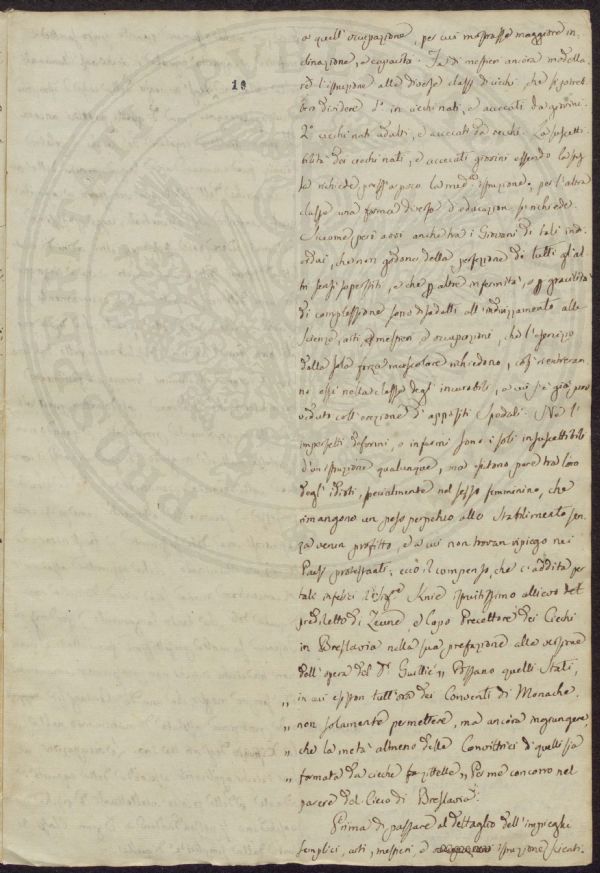 19
a quell'occupazione, per cui mostrasse maggiore in-
clinazione, e capacità. Fa di mestieri ancora modella-
re l'istruzione alle diverse classi di ciechi, che si potreb-
ber dividere 1° in ciechi nati, e accecati da giovine.
2° ciechi nati adulti, e accecati da vecchi. La suscetti-
bilità dei ciechi nati, e accecati giovini essendo la stes-
sa richiede press'a poco la med.a istruzione, per l'altra
classe una forma diversa d'educazion si richiede.
Siccome però avvi anche tra i Giovani di tali ind-
vidui, che non godono della perfezione di tutti gli al-
tri sensi superstiti, e che p altre infermità, o p gracilità
di complessione sono disadatti all'indirizzamento alle
Scienze, arti, mestieri ed occupazioni, che l'esercizio
della sola forza muscolare richiedono, così rientreran-
no essi nella classe degl'incurabili, a cui s'è già prov-
veduto coll'erezione d'appositi Spedali. Nè l'
imperfetti deformi, o infermi sono i soli insuscettibili
d'un istruzione qualunque, ma esistono pure tra loro
degl'idioti, specialmente nel sesso femminino, che
rimangono un peso perpetuo allo Stabilimento sen-
za verun profitto, e a cui non trovan ripiego nei
Paesi protestanti; ecco il compenso, che ci addita per
tali infelici Knie istruitissimo allievo del
prediletto di Zeune, e Capo Precettore dei Ciechi
in Breslavia nella sua prefazione alla versione
dell'opera del Dr Guillié „ Possano quelli Stati,
„ in cui esiston tuttora dei Conventi di Monache,
„ non solamente permettere, ma ancora ingiungere
„ che la metà almeno delle Convittrici di quelli sia
„ formata da cieche zittelle „ Per me concorro nel
parere del Cieco di Breslavia.
Prima di passare al dettaglio dell'impieghi
semplici, arti, mestieri, e istruzione scienti-